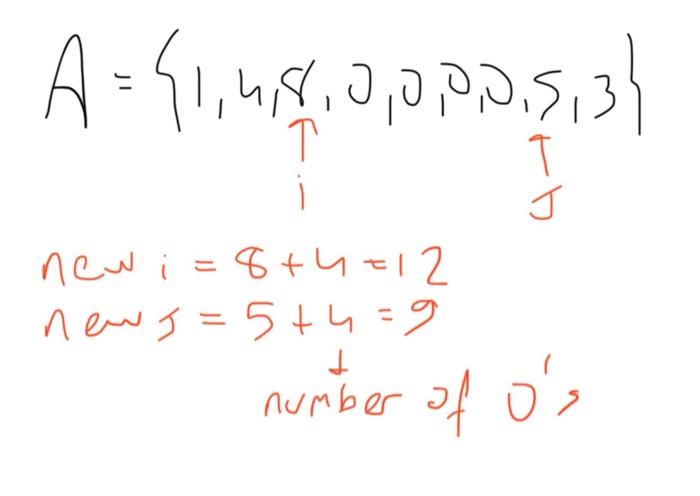 A = {1,4,8,0,0,0,0,5,3}
↑ ↑
i J
new i = 8+4=12
new J = 5+4=9
↓
number of 0's